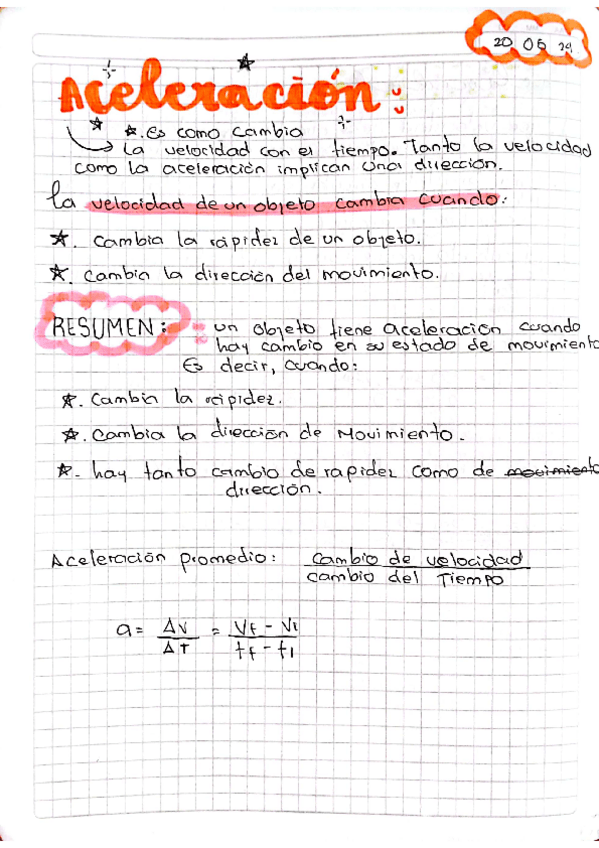 20 05 24
Aceleración:
★ ★. es como cambia
la velocidad con el tiempo. Tanto la velocidad
como la aceleración implican una dirección.
la velocidad de un objeto cambia cuando:
★. Cambia la rapidez de un objeto.
★. Cambia la dirección del movimiento.
RESUMEN: un objeto tiene aceleración cuando
hay cambio en su estado de movimiento
Es decir, cuando:
★. Cambia la rapidez.
★. Cambia la dirección de Movimiento.
★- hay tanto cambio de rapidez como de movimiento
dirección.
Aceleración promedio: cambio de velocidad
cambio del Tiempo
a = Δv/ΔT = Vf - Vi/tf - ti